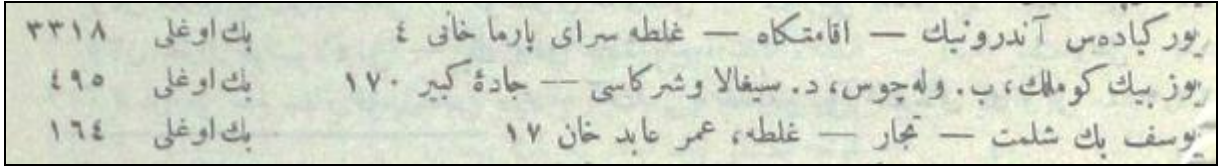 یورکیادەس آندرونیك — اقامتکاه — غلطه سرای پارما خانی ٤ بك اوغلی ٣٣١٨
یوز بیك کوملك، ب. ولەچوس، د. سیغالا وشرکاسی — جادۀ کبیر ١٧٠ بك اوغلی ٤٩٥
یوسف بك شلمت — تجار — غلطه، عمر عابد خان ١٧ بك اوغلی ١٦٤